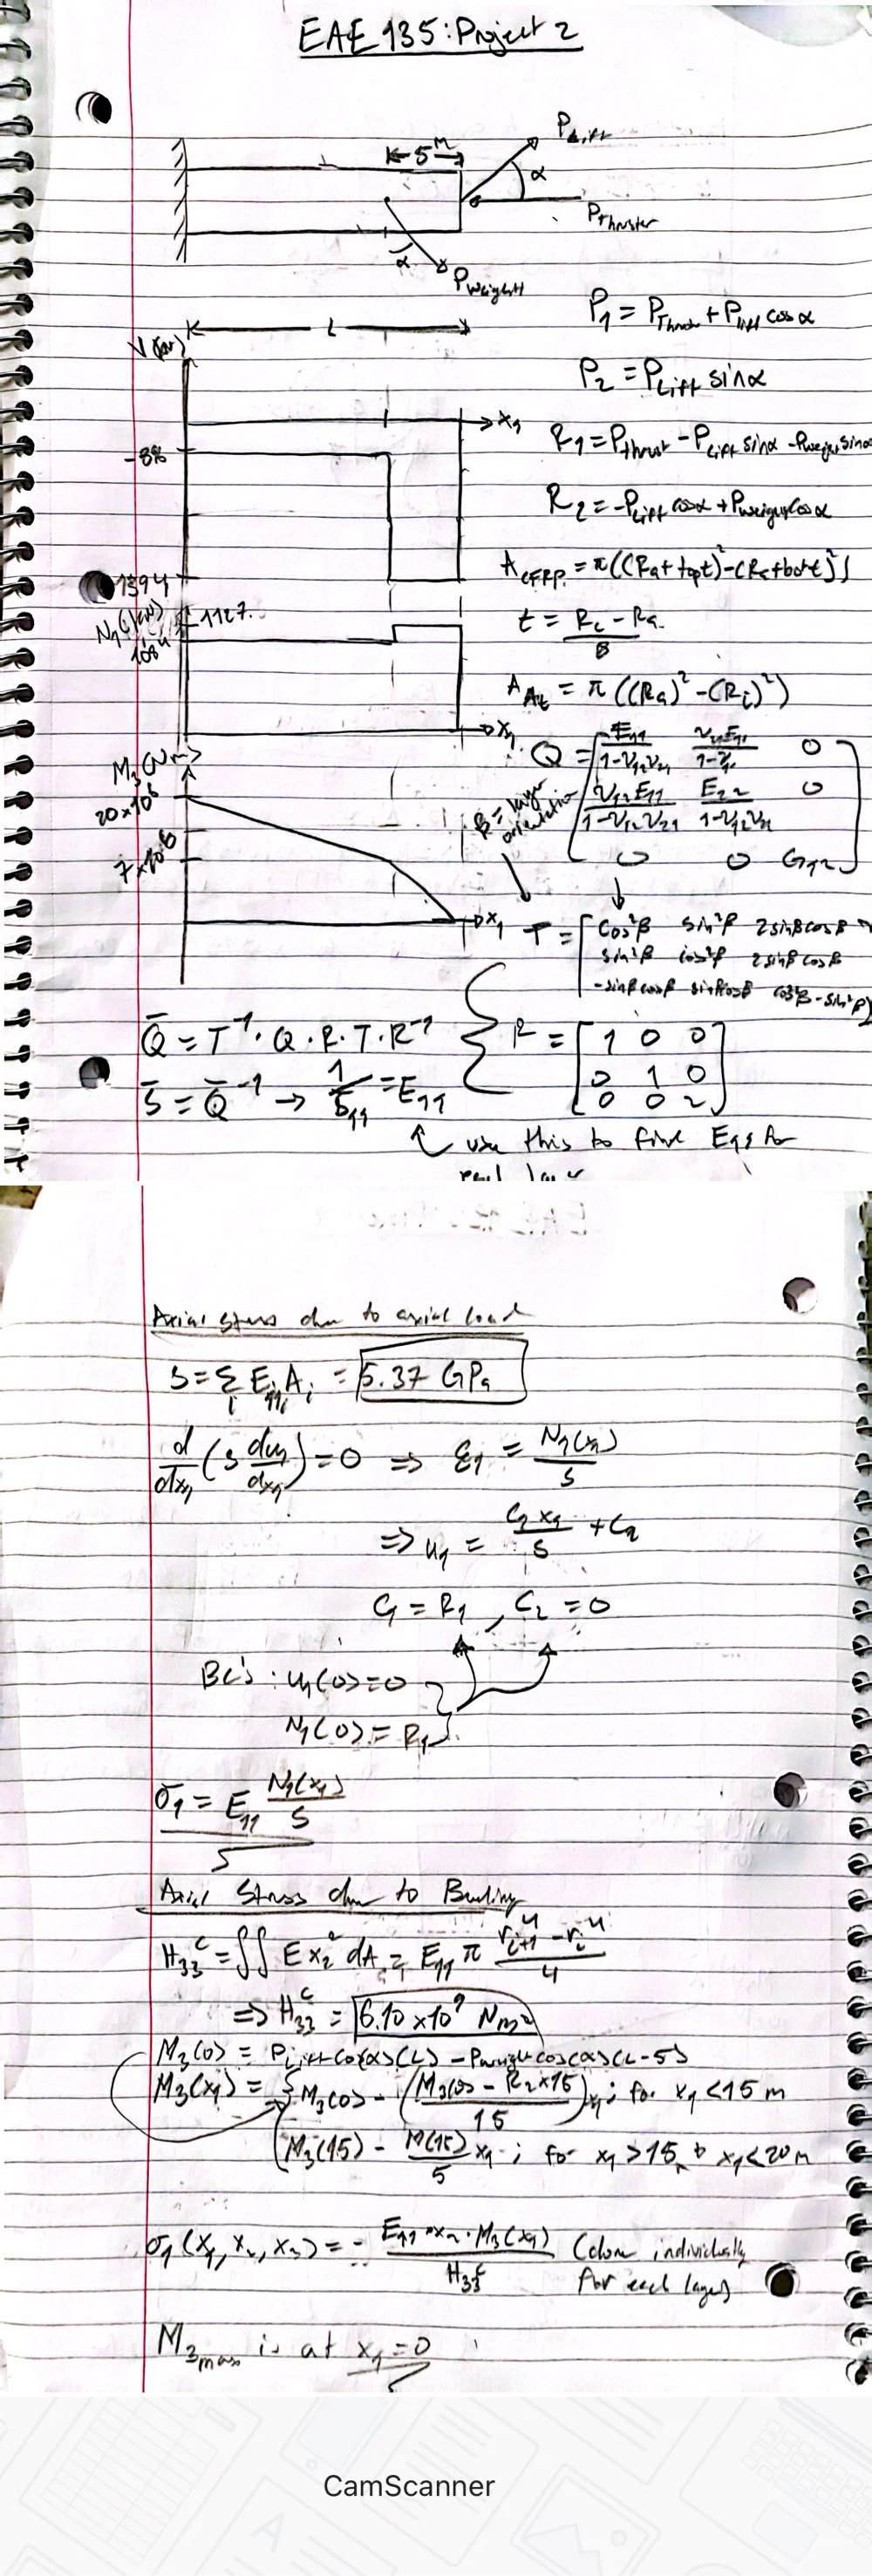 EAE 135: Project 2
5 m
P_Lift
α
P_Thruster
α
P_weight
L
P_1 = P_Thrust + P_lift cos α
P_2 = P_Lift sin α
R_1 = P_thrust - P_Lift sin α - P_weight sin α
R_2 = -P_Lift cos α + P_weight cos α
A_CFRP =
A_Al = π((R_a)² - (R_i)²)
x_1
1394
N_1 (kN)
1127.
1084
x_1
M_3 (Nm)
20×10⁶
7×10⁶
x_1
β = layer orientation
Q = [E_11/(1-ν_12ν_21) 0
ν_12E_11/(1-ν_12ν_21) E_22/(1-ν_12ν_21) 0
0 0 G_12]
T = [cos²β sin²β 2sinβcosβ
sin²β cos²β 2sinβcosβ
-sinβcosβ sinβcosβ cos²β-sin²β]
Q̄ = T⁻¹·Q·R·T·R⁻¹ { R = [1 0 0
0 1 0
0 0 2]
S̄ = Q̄⁻¹ → 1/S̄_11 = E_11
↑ use this to find E_11 for
Axial stress due to axial load
S = Σ_i E_11,i A_i = 5.37 GPa
d/dx_1 (S du_1/dx_1) = 0 ⇒ ε_1 = N_1(x_1)/S
⇒ u_1 = C_1x_1/S + C_2
C_1 = R_1, C_2 = 0
BC's: u_1(0)=0
N_1(0) = R_1
σ_1 = E_11 N_1(x_1)/S
Axial Stress due to Bending
H_33^c = ∬ E x_2² dA = E_11 π (r_{i+1}⁴ - r_i⁴)/4
⇒ H_33^c = 6.10 ×10⁹ Nm²
M_3(0) = P_lift cos(α)(L) - P_weight cos(α)(L-5)
M_3(x_1) = { M_3(0) - (M_3(0) - R_2×15)/15 x_1; for x_1 < 15 m
M_3(15) - M(15)/5 x_1; for x_1 > 15 & x_1 < 20 m
σ_1(x_1, x_2, x_3) = - E_11·x_2·M_3(x_1)/H_33^c (done individually
for each layer)
M_3max is at x_1=0
CamScanner